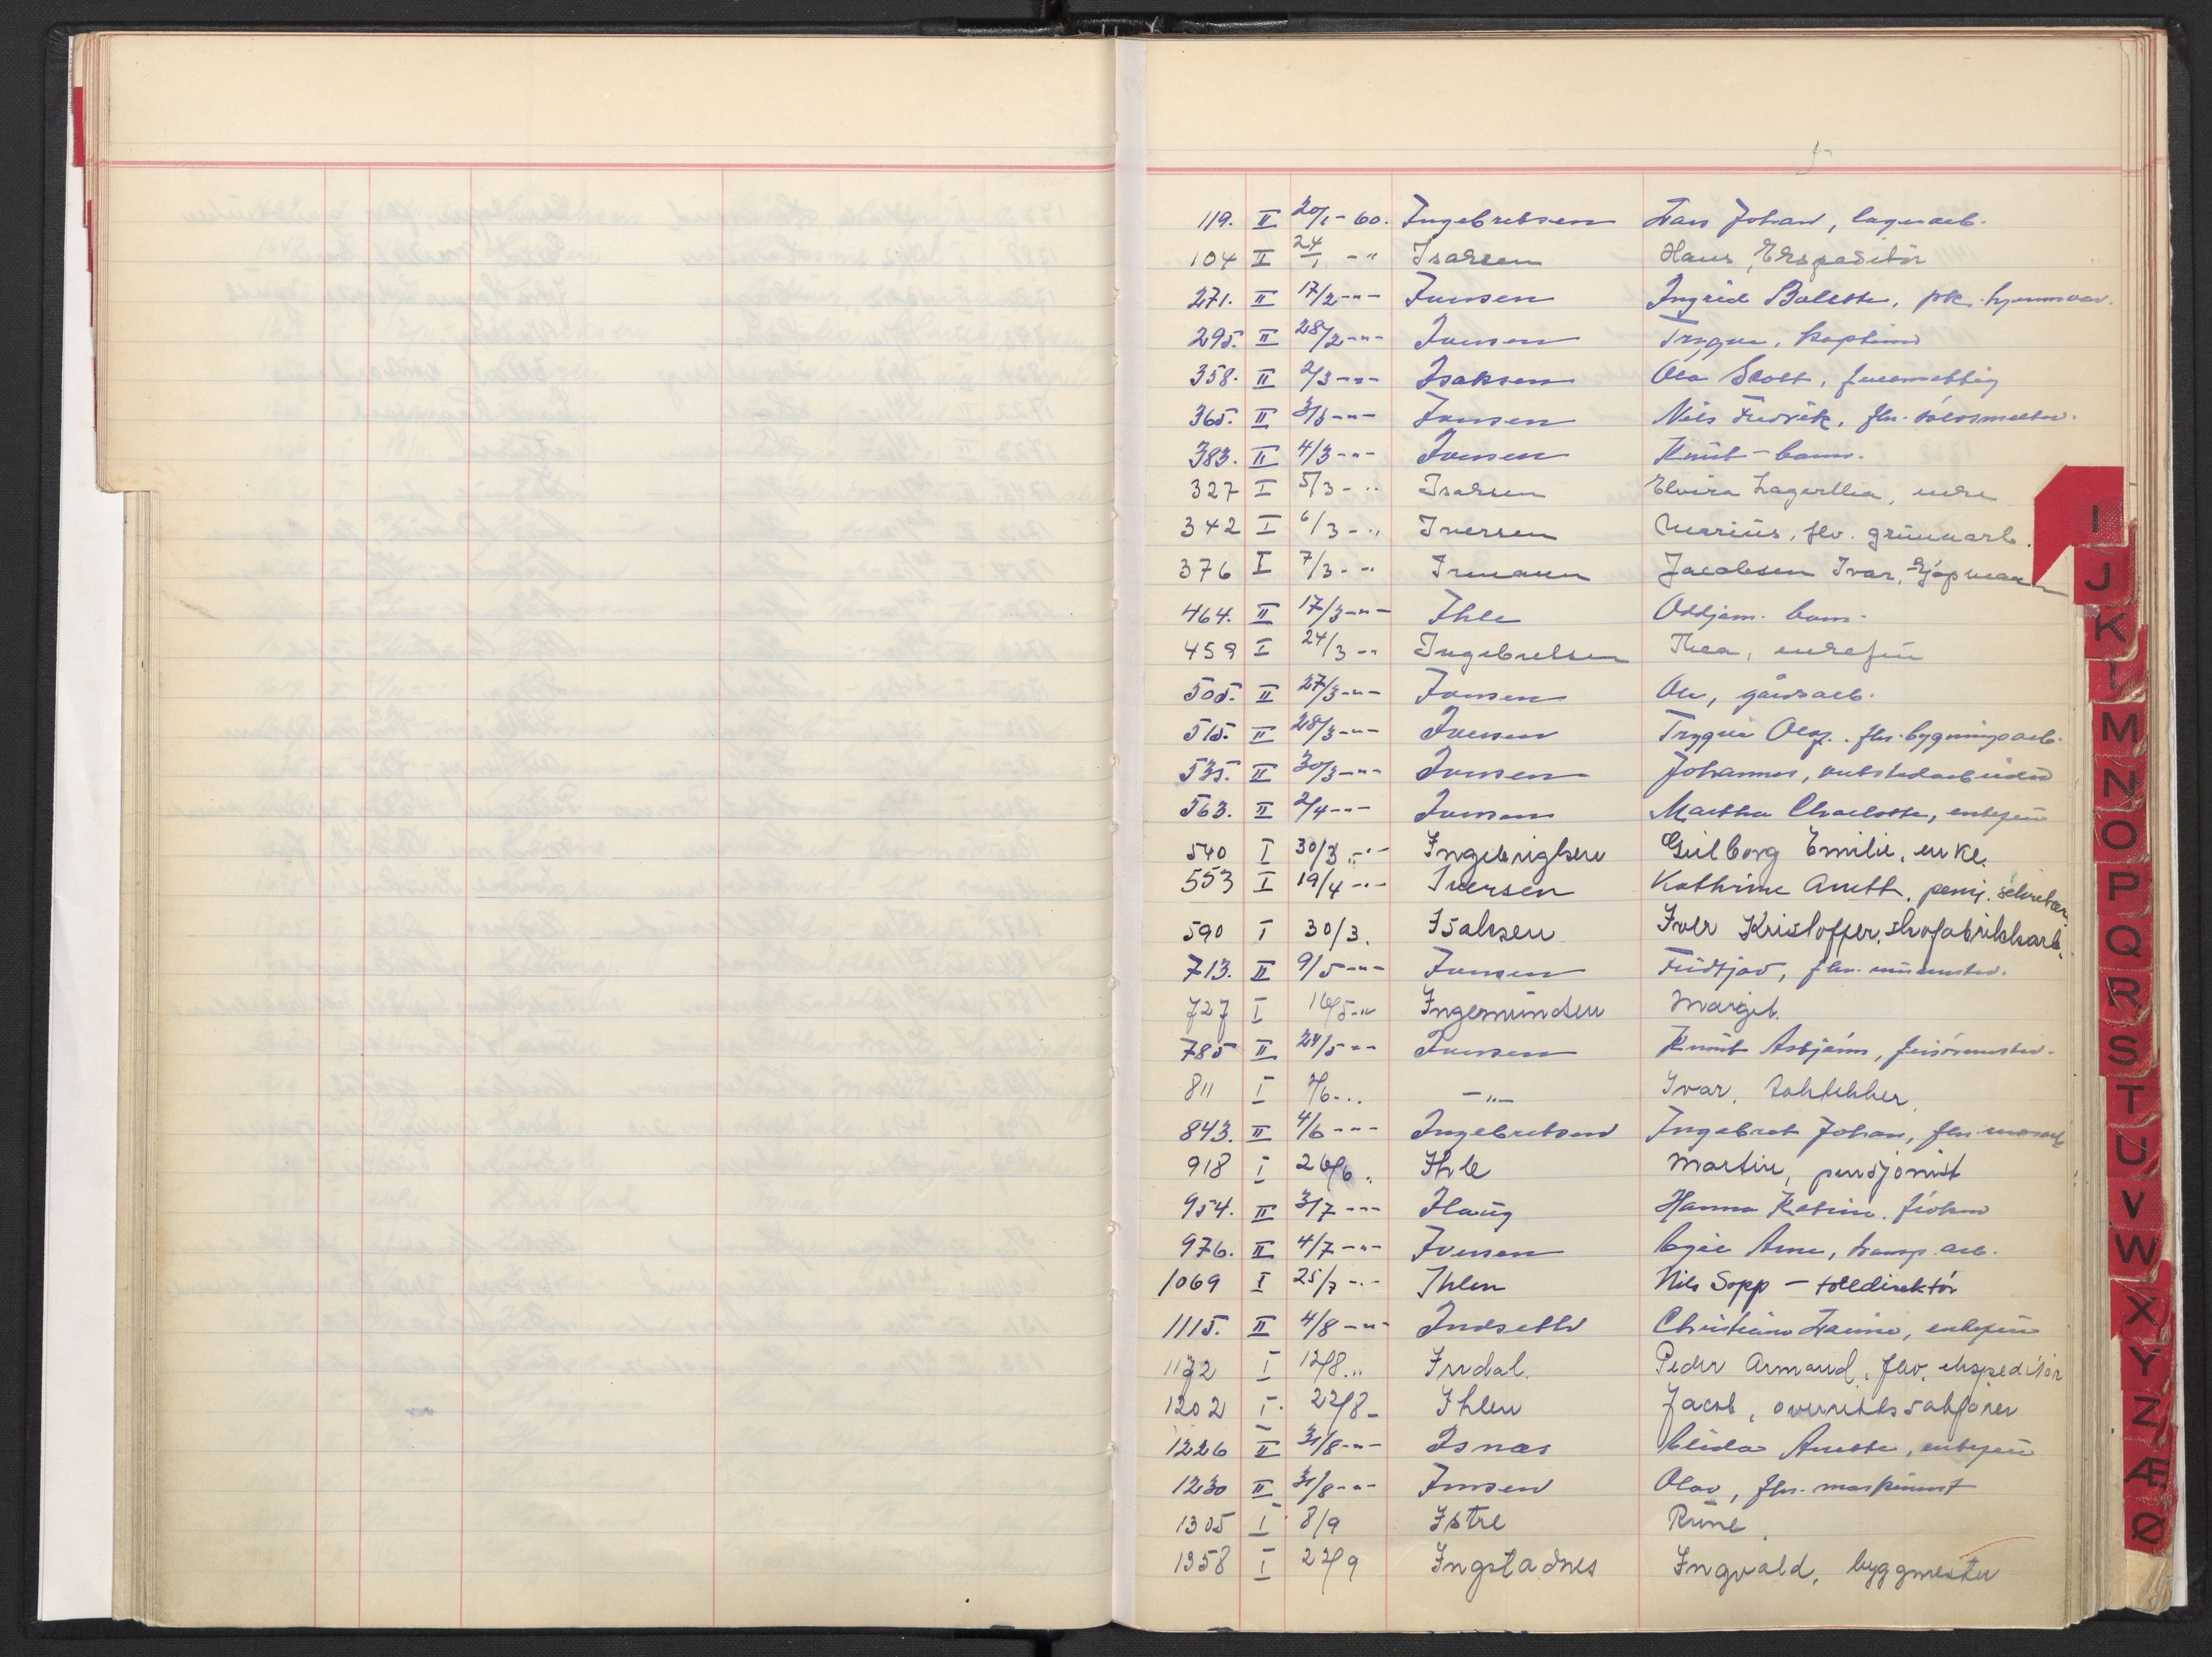 119. II 20/1 - 60. Ingebretsen Lars Johan, lagerarb.
104 II 24/1 - " Isaksen Hans, Ekspeditør
271. II 17/2 - " - Iversen Ingrid Bolette, pk. hjemmev.
295. II 28/2 - " - Iversen Trygve, kaptein
358. II 2/3 - " - Isaksen Ola Scott, fullmektig
365. II 3/3 - " - Iversen Nils Fredrik, fhv.
383. II 4/3 - " - Iversen Knut - barn.
327 I 5/3 - " Isaksen Elvira Lagertha, enke
342 I 6/3 - " Iversen Marius, fhv. grünnarb.
376 I 7/3 - " Irmann Jacobsen Ivar, Kjøpmann
464. II 17/3 - " - Ihle Oddjam. barn.
459 I 24/3 - " Ingebretsen Thea, enkefrü
505. II 27/3 - " - Iversen Ole, gårdsarb.
515. II 28/3 - " - Iversen Trygve Olaf. fhv. bygningsarb.
535. II 30/3 - " - Iversen Johannes, verkstedarbeider
563. II 2/4 - " - Iversen Martha Charlotte, enkefrü
540 I 30/3 - " - Ingebrigtsen Gülborg Emilie, enke.
553 I 19/4 - " - Iversen Kathrine Anett, pens. sekretær.
590 I 30/3. Isaksen Iver Kristoffer, skofabrikkarb.
713. II 9/5 - " - Iversen Fridtjov, fhv. mürmester.
727 I 16/5 - " Ingemündsen Margit.
785 II 24/5 - " - Iversen Knüt Asbjørn, frisørmester.
811 I 2/6 - . . - " - Ivar, taktekker.
843. II 4/6 - " - Ingebretsen Ingebret Johan, fhv.
918 I 26/6. Ihle Martin, pensjonist
954. II 3/7 - " - Ilaüg Hanna Katrine, frøken
976. II 4/7 - " - Iversen Arne, transp. arb.
1069 I 25/7 - " - Ihlen Nils Sopp - tolldirektør
1115. II 4/8 - " - Indseth Christiane Laura, enkefrü
1172 I 12/8 . . Irrdal. Peder Armand, fhv. ekspeditør
1202 I. 22/8 - Ihlen Jacob, overrettssakfører
1226 II 31/8 - " - Isnæs Anette, enkefrü
1230 II 31/8 - " - Iversen Olav, fhv. maskinist
1305 I 8/9 Istre Rüne.
1358 I 22/9 Ingstadnes Ingvald, byggmester
I
J
K
L
M
N
O
P
Q
R
S
T
U
V
W
X
Y
Z
Æ
Ø